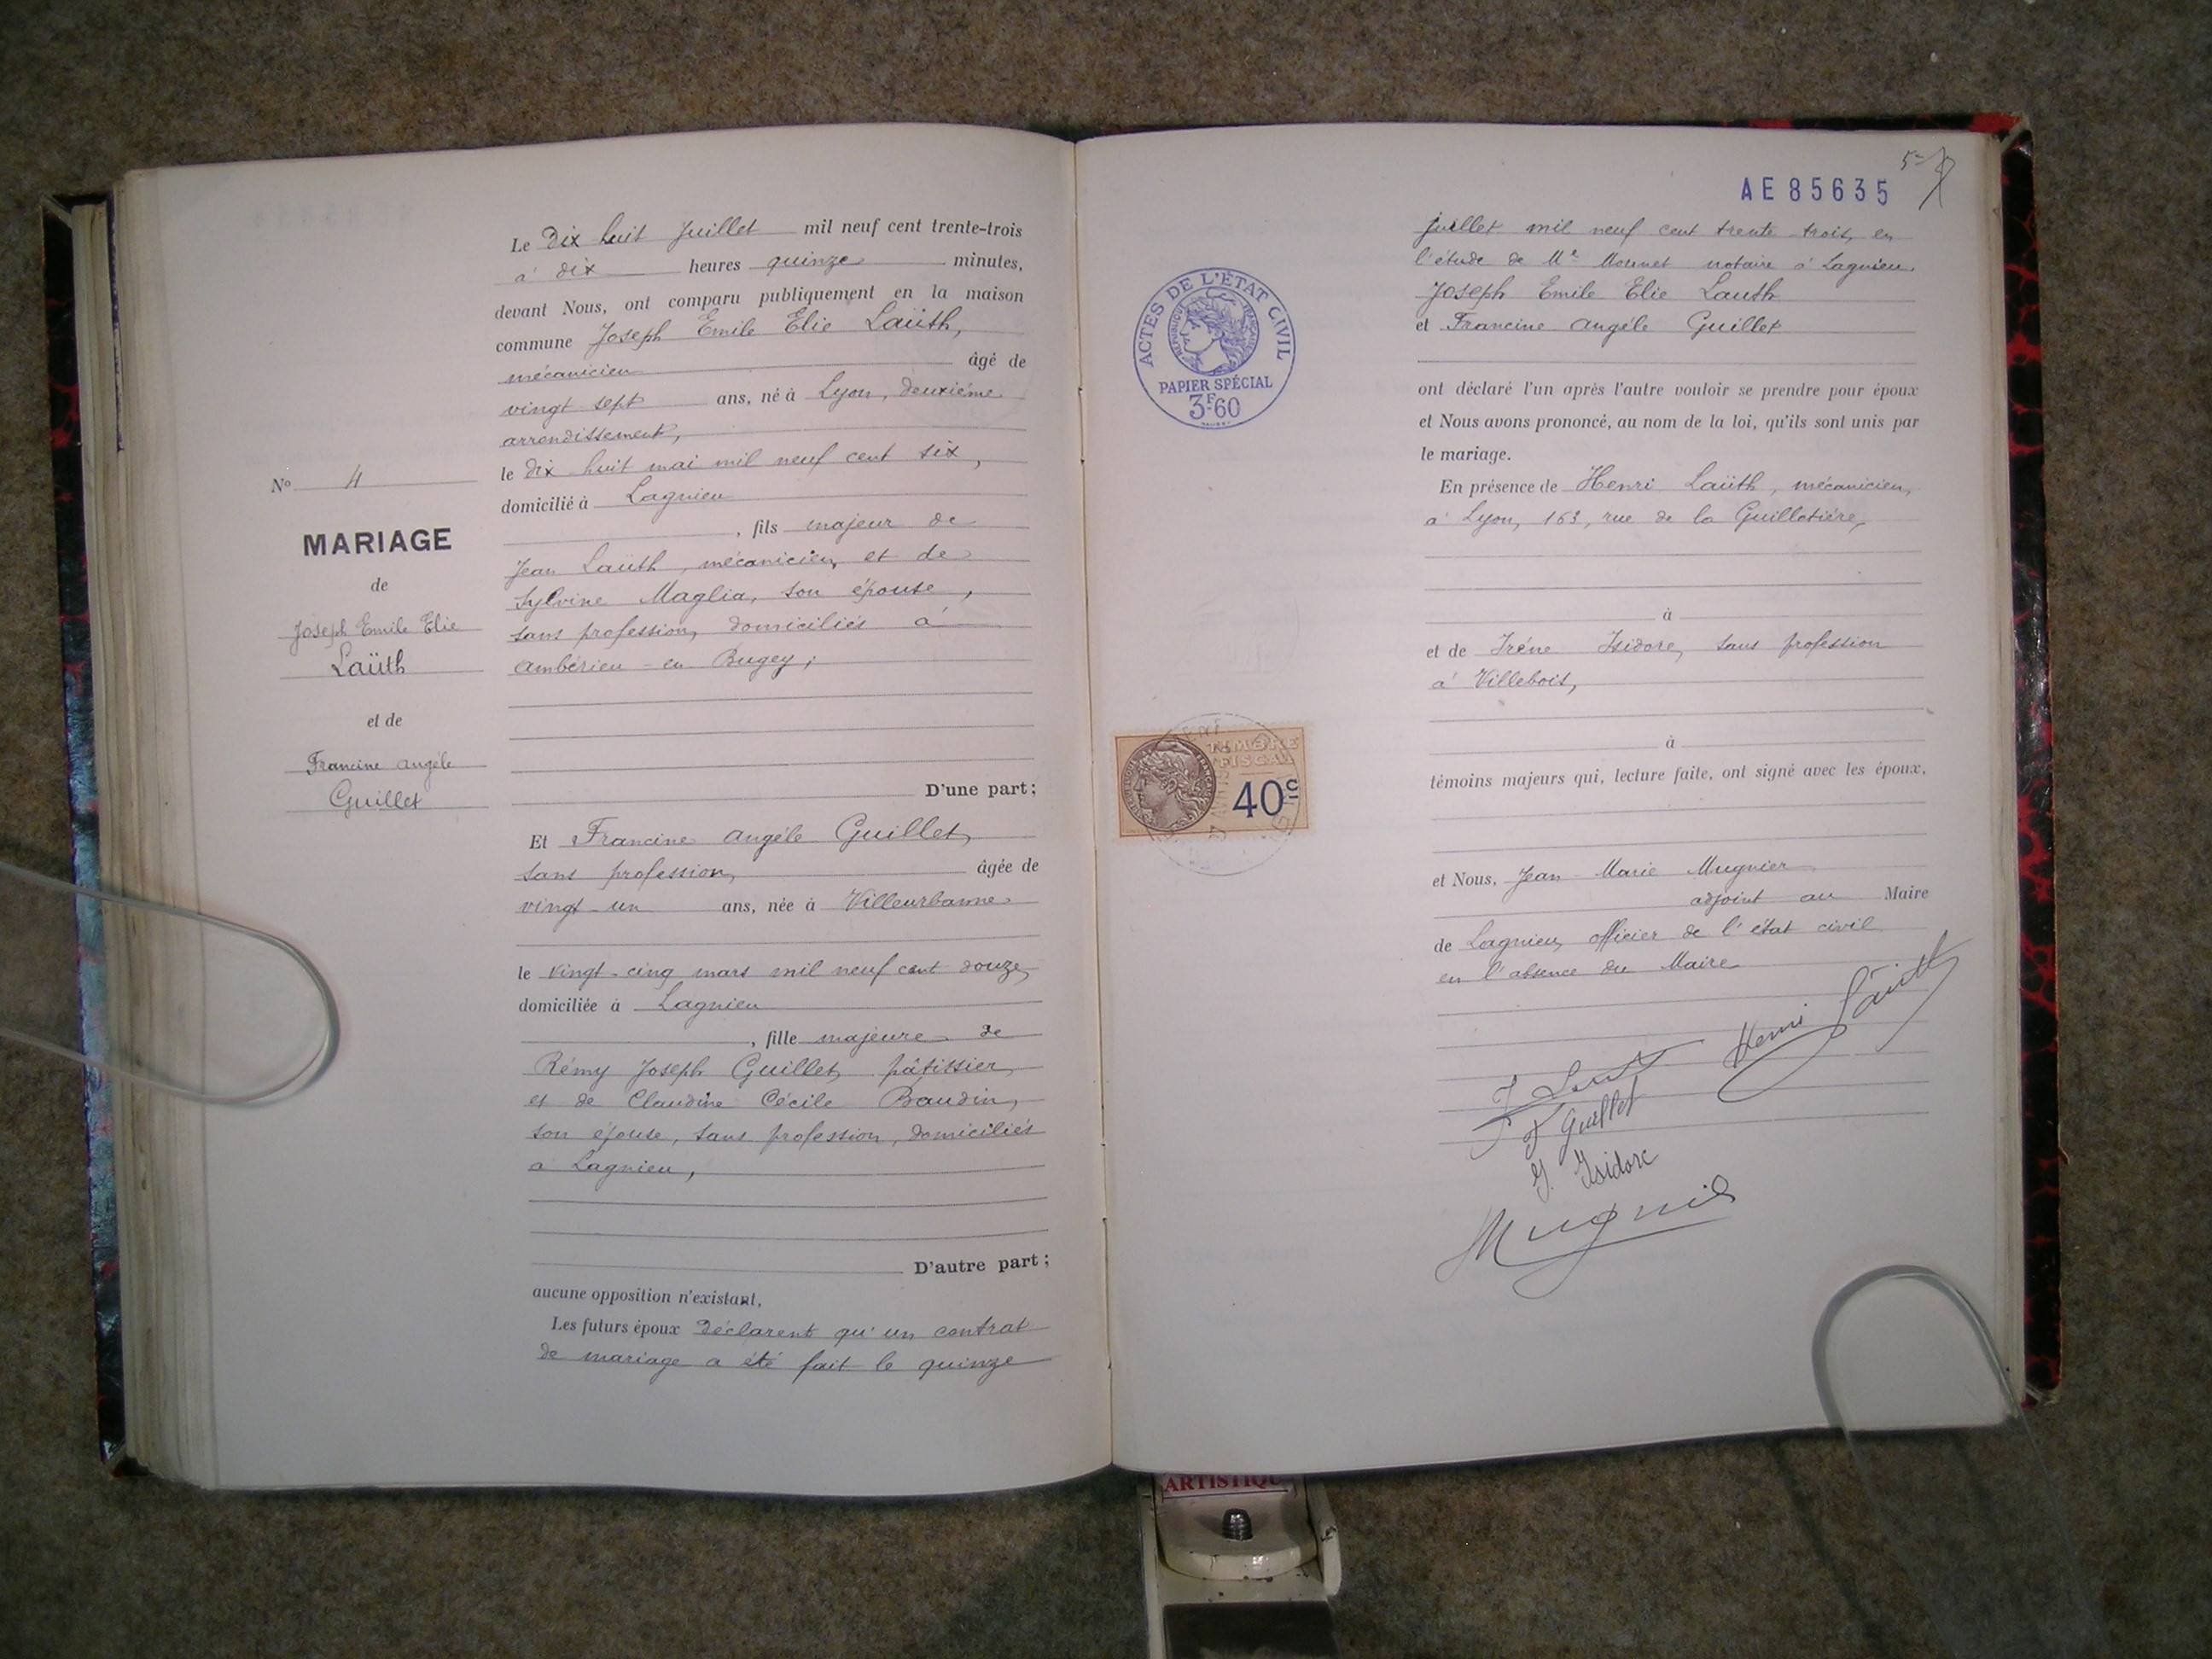 Le Dix huit Juillet mil neuf cent trente-trois
à dix heures quinze minutes,
devant Nous, ont comparu publiquement en la maison
commune Joseph Emile Elie Laüth,
mécanicien âgé de
vingt sept ans, né à Lyon, deuxième
arrondissement,
le dix huit mai mil neuf cent six,
domicilié à Lagnieu
, fils majeur de
Jean Laüth, mécanicien, et de
Sylvine Maglia, son épouse,
sans profession, domiciliés à
Ambérieu-en Bugey;
D'une part;
Et Francine Angèle Guillet,
sans profession, âgée de
vingt-un ans, née à Villeurbanne
le vingt-cinq mars mil neuf cent douze,
domiciliée à Lagnieu
, fille majeure de
Rémy Joseph Guillet, pâtissier,
et de Claudine Cécile Baudin,
son épouse, sans profession, domiciliés
à Lagnieu,
D'autre part;
aucune opposition n'existant,
Les futurs époux déclarent qu'un contrat
de mariage a été fait le quinze
No 4
MARIAGE
de
Joseph Emile Elie
Laüth
et de
Francine Angèle
Guillet
AE 85635
juillet mil neuf cent trente trois, en
l'étude de Me Monnet notaire à Lagnieu.
Joseph Emile Elie Lauth
et Francine Angèle Guillet
ont déclaré l'un après l'autre vouloir se prendre pour époux
et Nous avons prononcé, au nom de la loi, qu'ils sont unis par
le mariage.
En présence de Henri Laüth, mécanicien,
à Lyon, 163, rue de la Guillotière,
à
et de Irène Isidore, sans profession
à Villebois,
à
témoins majeurs qui, lecture faite, ont signé avec les époux,
et Nous, Jean-Marie Mugnier
adjoint au Maire
de Lagnieu, officier de l'état civil
en l'absence du Maire
Henri Laüth
J Lauth
F Guillet
I. Isidore
Mugnier
ACTES DE L'ÉTAT CIVIL
RÉPUBLIQUE FRANÇAISE
PAPIER SPÉCIAL
3F60
TIMBRE
FISCAL
40c
ARTISTIQU